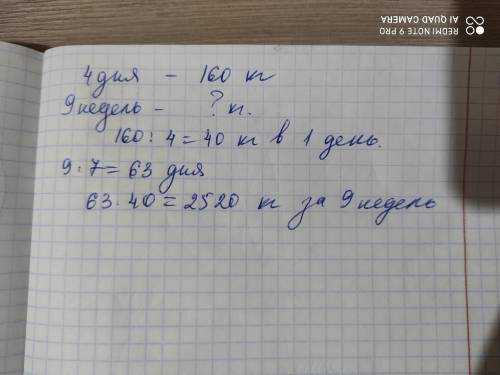 4 дня – 160 кг
9 недель – ? кг.
160 : 4 = 40 кг в 1 день.
9 · 7 = 63 дня
63 · 40 = 2520 кг за 9 недель
REDMI NOTE 9 PRO
AI QUAD CAMERA